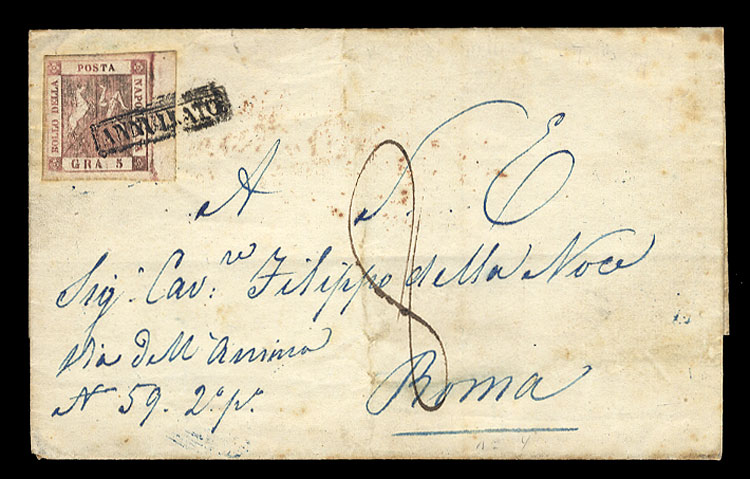 POSTA
BOLLO DELLA
NAPO
GRA 5
ANNULLATO
A S. E.
8
Sig.r Cav:re Filippo della Noce
Via dell'Anima
N 59. 2° p°
Roma